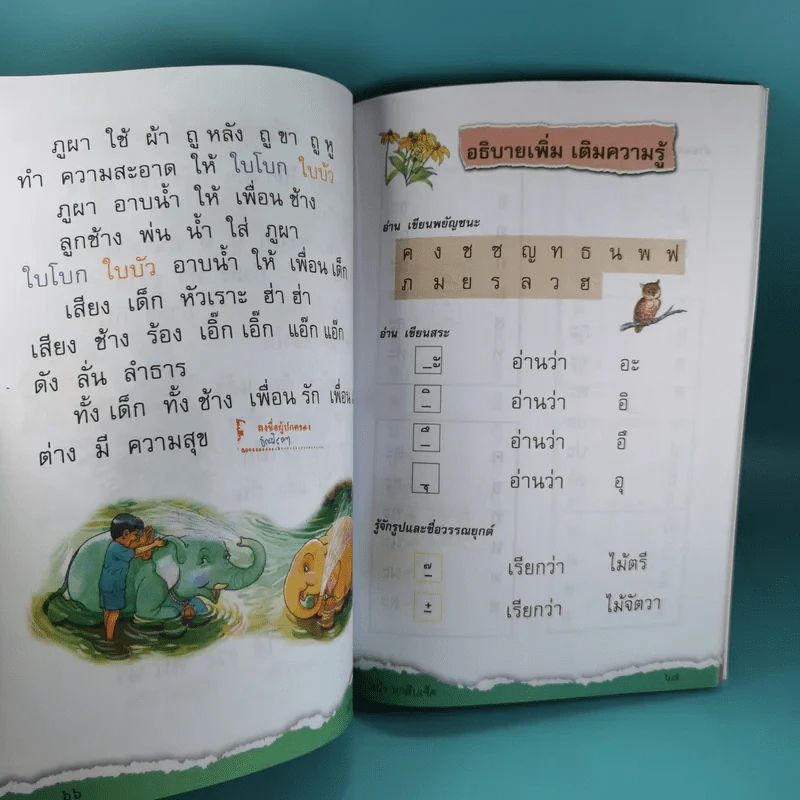 ภูผา ใช้ ผ้า ถู หลัง ถู ขา ถู หู
ทำ ความสะอาด ให้ ใบโบก ใบบัว
ภูผา อาบน้ำ ให้ เพื่อน ช้าง
ลูกช้าง พ่น น้ำ ใส่ ภูผา
ใบโบก ใบบัว อาบน้ำ ให้ เพื่อน เด็ก
เสียง เด็ก หัวเราะ ฮ่า ฮ่า
เสียง ช้าง ร้อง เอิ๊ก เอิ๊ก แอ๊ก แอ๊ก
ดัง ลั่น ลำธาร
ทั้ง เด็ก ทั้ง ช้าง เพื่อน รัก เพื่อน
ต่าง มี ความสุข
ลงชื่อผู้ปกครอง
๖๖
อธิบายเพิ่ม เติมความรู้
อ่าน เขียนพยัญชนะ
ค ง ช ซ ญ ท ธ น พ ฟ
ภ ม ย ร ล ว ฮ
อ่าน เขียนสระ
-ะ อ่านว่า อะ
-ิ อ่านว่า อิ
-ึ อ่านว่า อึ
-ุ อ่านว่า อุ
รู้จักรูปและชื่อวรรณยุกต์
-๊ เรียกว่า ไม้ตรี
-๋ เรียกว่า ไม้จัตวา
๖๗